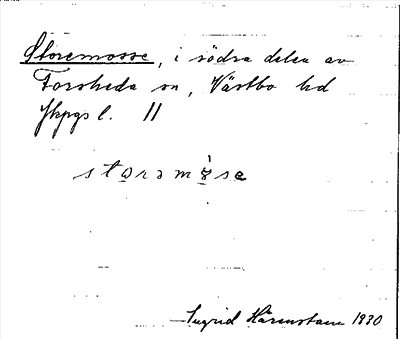 Storemosse, i södra delen av
Forsheda sn, Västbo hd
Jkpgs l. 11
storəmòsə
Ingrid Härenstam 1930